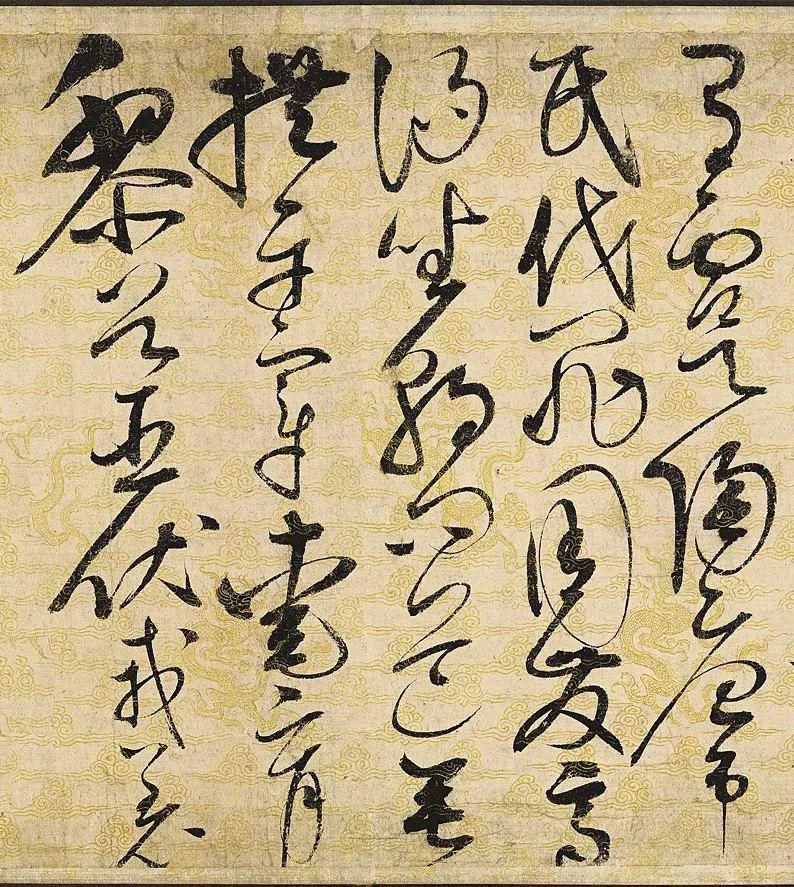 有虞陶唐吊
民伐罪周發商
湯坐朝問道垂
拱平章愛育
黎首臣伏戎羌